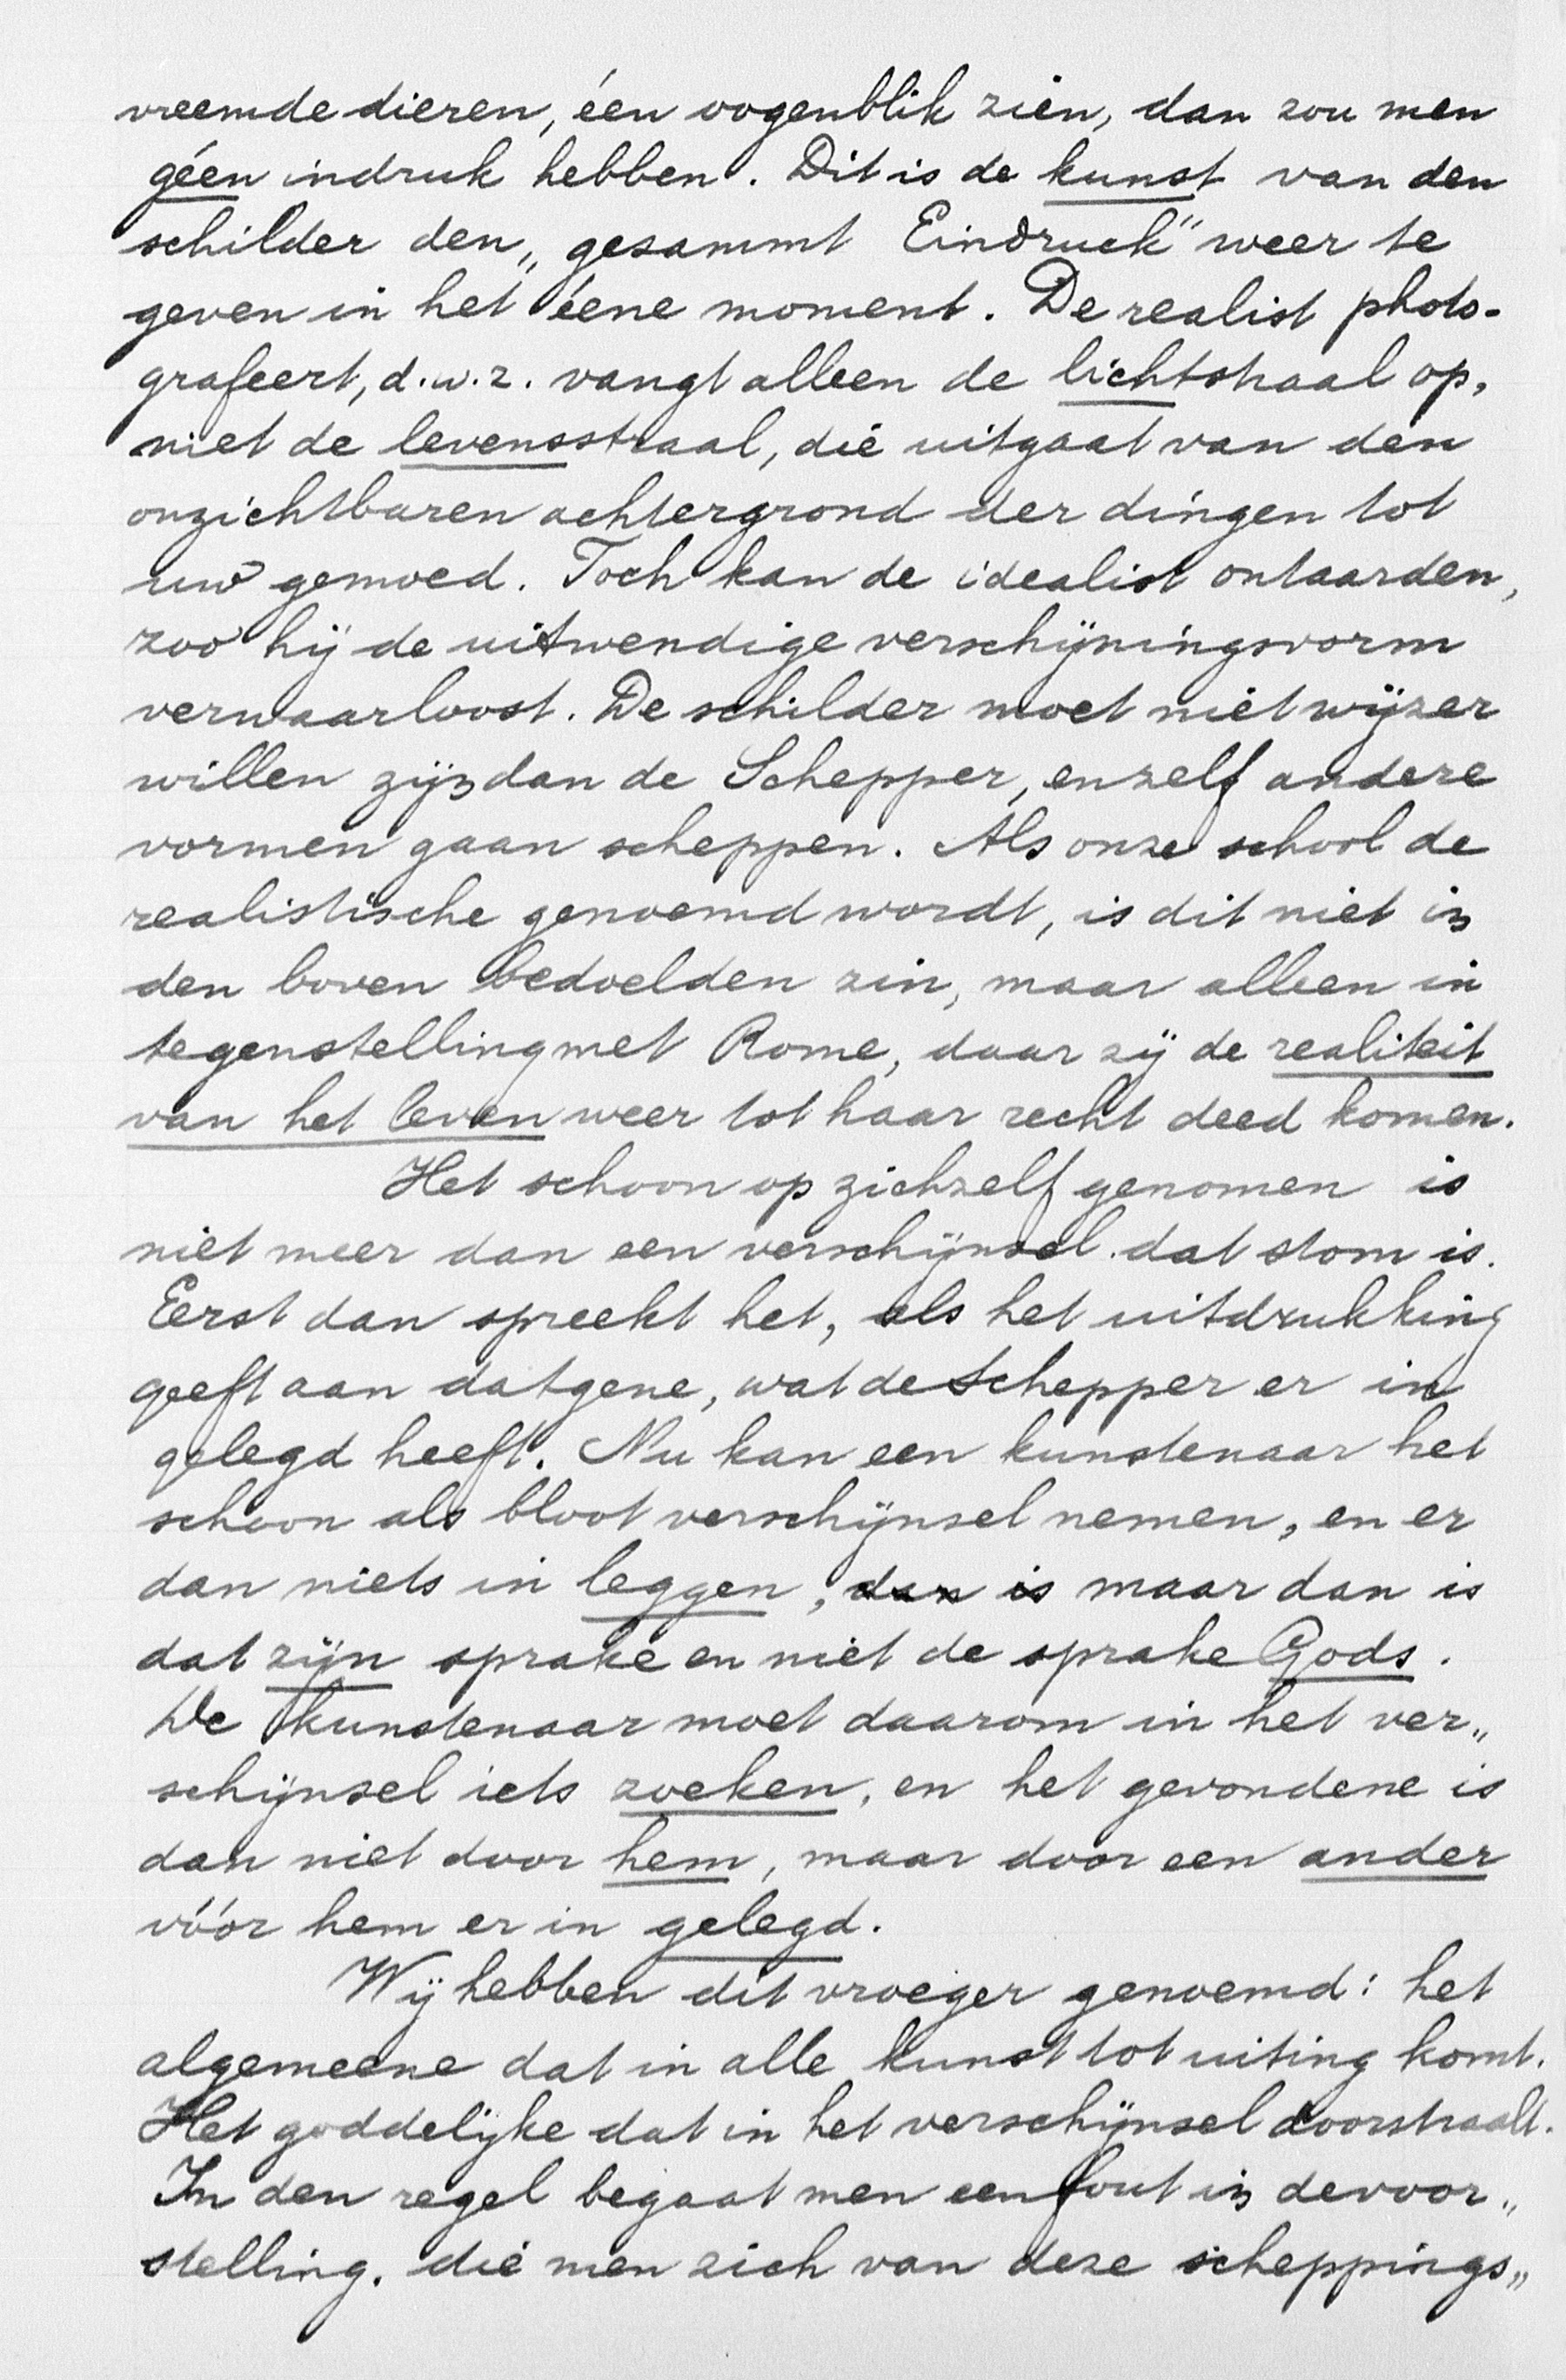 vreemde dieren, één oogenblik zien, dan zou men
géén indruk hebben. Dit is de kunst van den
schilder den „gesammt Eindruck" weer te
geven in het ééne moment. De realist photo-
grafeert, d.w.z. vangt alleen de lichtstraal op,
niet de levensstraal, die uitgaat van den
onzichtbaren achtergrond der dingen tot
uw gemoed. Toch kan de idealist ontaarden,
zoo hij de uitwendige verschijningsvorm
verwaarloost. De schilder moet niet wijzer
willen zijn dan de Schepper, en zelf andere
vormen gaan scheppen. Als onze school de
realistische genoemd wordt, is dit niet in
den boven bedoelden zin, maar alleen in
tegenstelling met Rome, daar zij de realiteit
van het leven weer tot haar recht deed komen.
Het schoon op zichzelf genomen is
niet meer dan een verschijnsel dat stom is.
Eerst dan spreekt het, als het uitdrukking
geeft aan datgene, wat de Schepper er in
gelegd heeft. Nu kan een kunstenaar het
schoon als bloot verschijnsel nemen, en er
dan niets in leggen, dan is maar dan is
dat zijn sprake en niet de sprake Gods.
De kunstenaar moet daarom in het ver„
schijnsel iets zoeken, en het gevondene is
dan niet door hem, maar door een ander
vóór hem er in gelegd.
Wij hebben dit vroeger genoemd: het
algemeene dat in alle kunst tot uiting komt.
Het goddelijke dat in het verschijnsel doorstraalt.
In den regel begaat men een fout in de voor„
stelling, die men zich van deze scheppings„